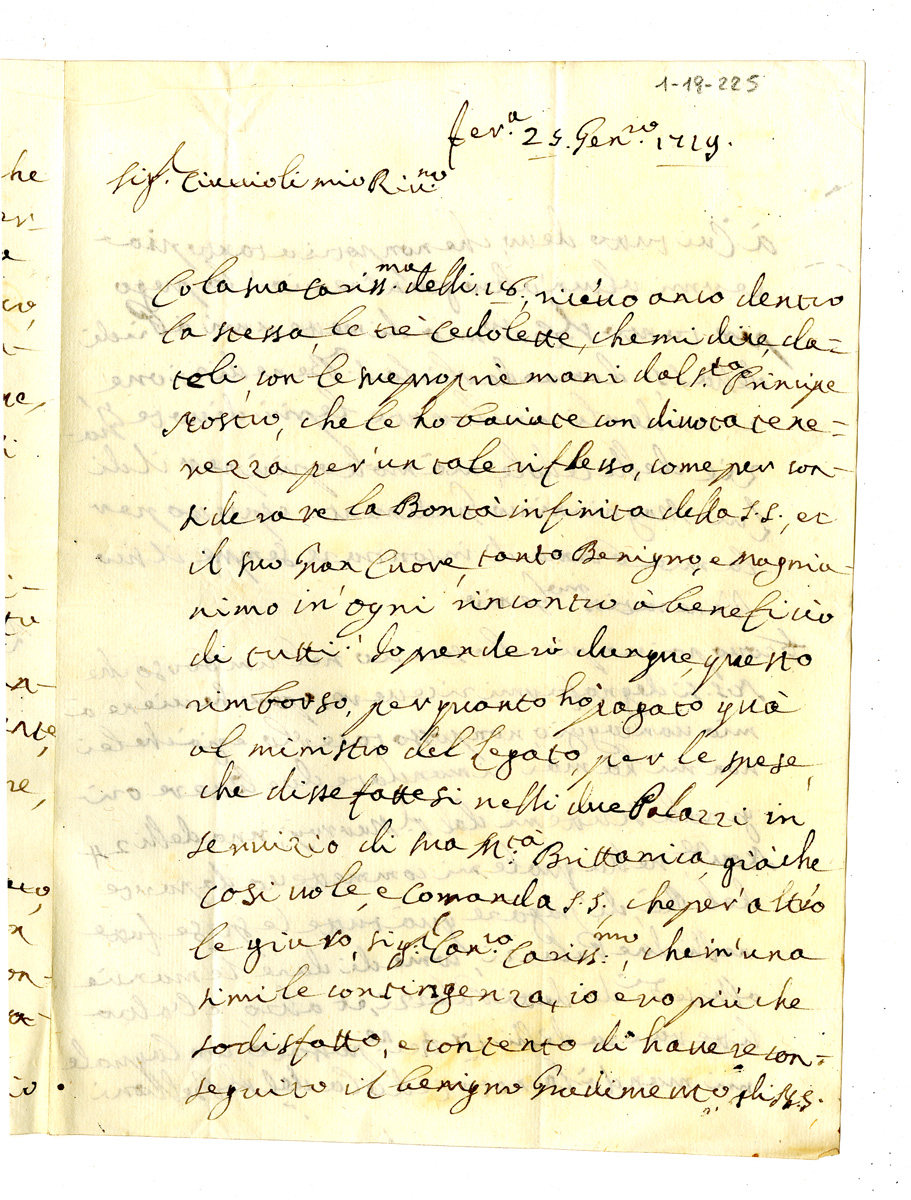 1-19-225
Fer.a 25. Gen.ro 1719.
Sig.r Ciuccioli mio Riv.mo
Cola sua cariss.ma delli 18, ricevo anco dentro
la stessa, le trè Cedolette, che mi dice, da=
teli, con le sue proprie mani dal S.to Principe
Nostro, che le ho baciate con divota tene=
rezza per un tale riflesso, come per con-
siderare la Bontà infinita della S.S., et
il suo Gran Cuore, tanto Benigno, e Magna-
nimo in' ogni rincontro à beneficio
di tutti. Io prenderò dunque, questo
rimborso, per quanto hò pagato quà
al ministro del Legato, per le spese,
che disse fattesi nelli due Palazzi in
servizio di sua M.tà Brittanica, già che
così vole, e comanda S.S., che per altro
le giuro, sig.r Can.co Cariss.mo, che in' una
simile contingenza, io ero più che
sodisfatto, e contento di havere con=
seguito il benigno Gradimento di S.S.
he
re,
nte,
re,
on-